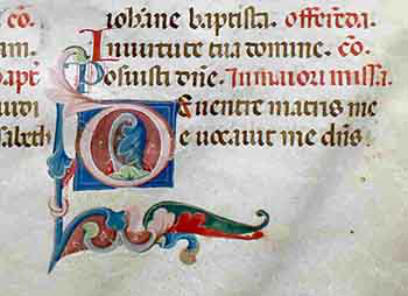 cō. iohāne baptista. offerēda.
am. In uirtute tua domine. cō.
bapt Posuisti dñe. In maiori missa.
De uentre matris me
sabeth e uocauit me dñs.